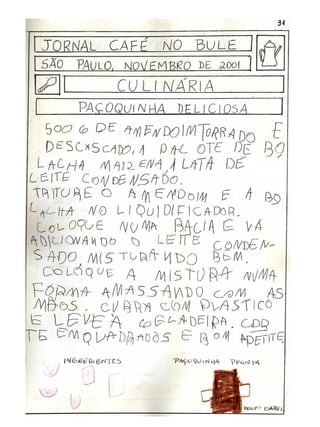 31
JORNAL CAFÉ NO BULE
SÃO PAULO, NOVEMBRO DE 2001
CULINÁRIA
PAÇOQUINHA DELICIOSA
500 G DE AMENDOIM TORRADO E
DESCASCADO, 1 PACOTE DE BO
LACHA MAIZENA, 1 LATA DE
LEITE CONDENSADO.
TRITURE O AMENDOIM E A BO
LACHA NO LIQUIDIFICADOR.
COLOQUE NUMA BACIA E VÁ
ADICIONANDO O LEITE CONDEN-
SADO, MISTURANDO BEM.
COLOQUE A MISTURA NUMA
FÔRMA AMASSANDO COM AS
MÃOS. CUBRA COM PLASTICO
E LEVE À GELADEIRA. COR
TE EM QUADRADOS E BOM APETITE
INGREDIENTES PAÇOQUINHA PRONTA
PROFª ISABEL